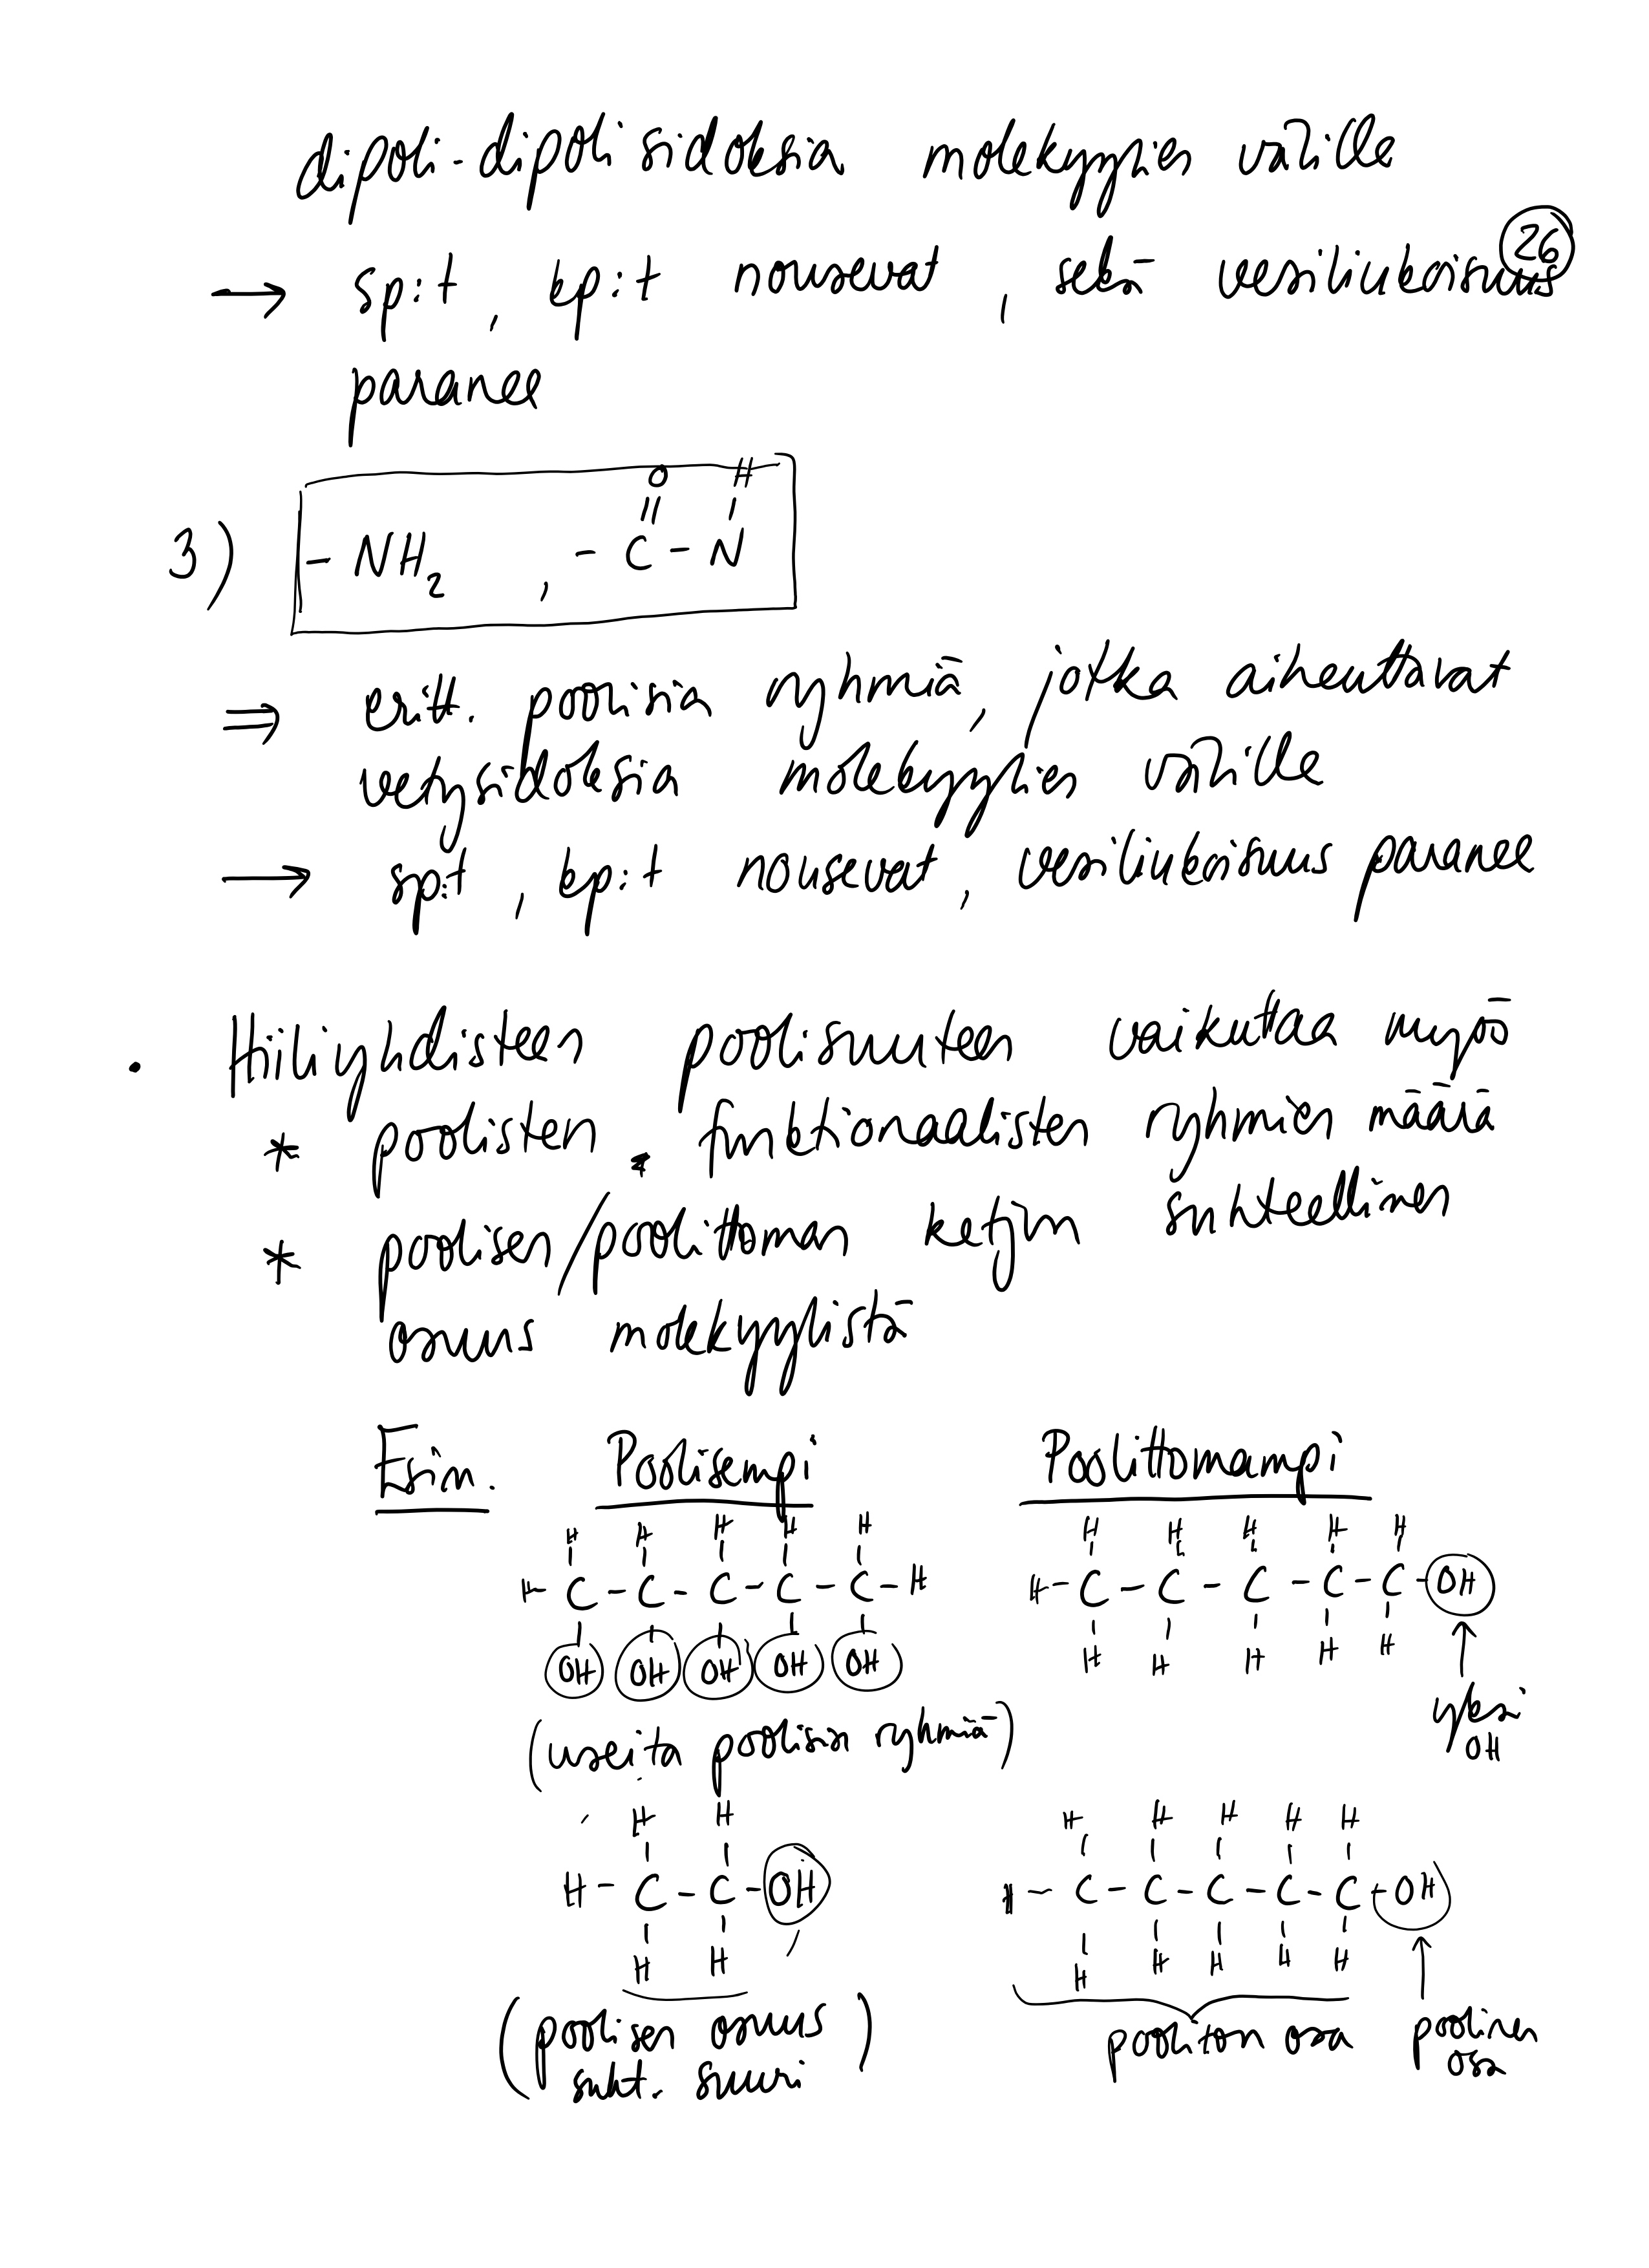 dipoli-dipoli sidoksia molekyylien välille
26
→ sp:t, kp:t nousevat, sekä vesiliukoisuus
paranee
O H
|| |
3) - NH2 , - C - N
⇒ eritt. poolisia ryhmiä, jotka aiheuttavat
vetysidoksia molekyylien välille
→ sp:t, kp:t nousevat, vesiliukoisuus paranee
• Hiiliyhdisteen poolisuuteen vaikuttaa myös
* poolisten funktionaalisten ryhmien määrä
* poolisen/poolittoman ketjun suhteellinen
osuus molekyylistä
Esim. Poolisempi Poolittomampi
H H H H H H H H H H
H - C - C - C - C - C - H H - C - C - C - C - C - OH
OH OH OH OH OH H H H H H
(useita poolisia ryhmiä) yksi
OH
H H H H H H H
H - C - C - OH H - C - C - C - C - C - OH
H H H H H H H
(poolisen osuus pooliton osa poolinen
suht. suuri) osa